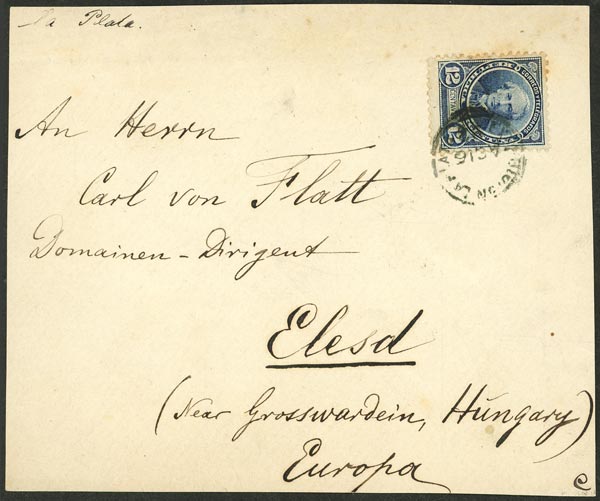 La Plata.
An Herrn
Carl von Flatt
Domainen-Dirigent
Elesd
(Near Grosswardein, Hungary)
Europa
CORREOS Y TELEGRAFOS
12
12
LA PLATA
e